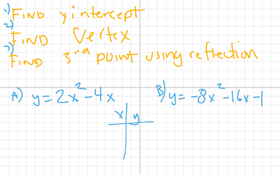 1) FIND y intercept
2) FIND Vertex
3) FIND 3rd point using reflection
A) y = 2x² - 4x
B) y = -8x² - 16x - 1
x y